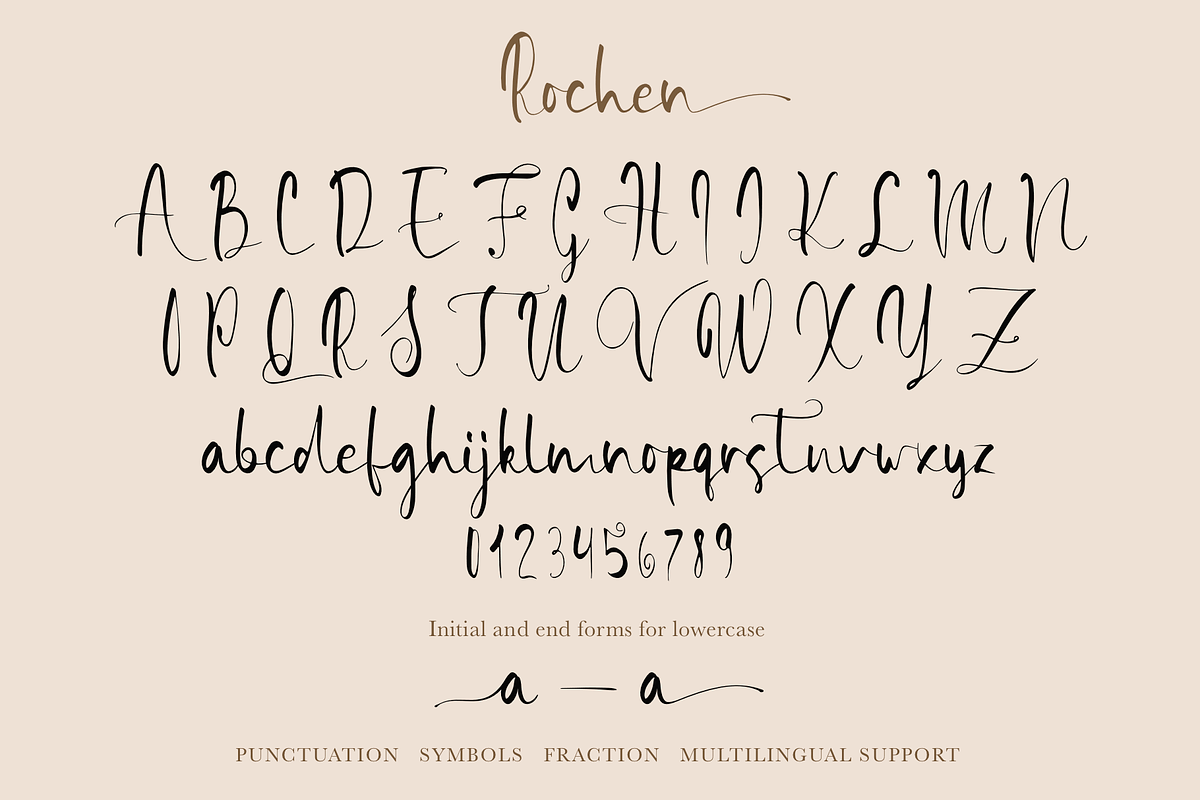 Rochen
A B C D E F G H I J K L M N
O P Q R S T U V W X Y Z
abcdefghijklmnopqrstuvwxyz
0123456789
Initial and end forms for lowercase
a — a
PUNCTUATION SYMBOLS FRACTION MULTILINGUAL SUPPORT